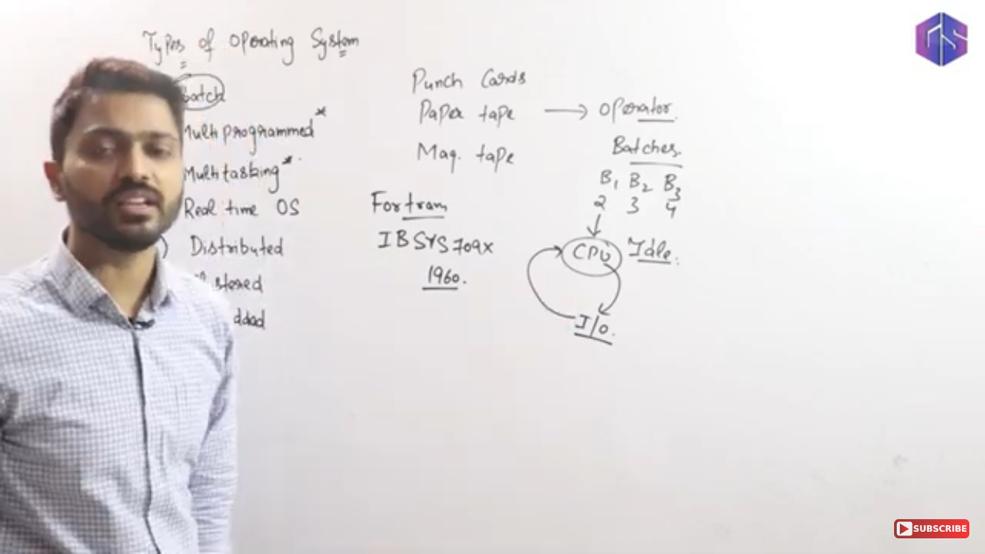 Types of Operating System
Batch
Multiprogrammed*
Multitasking*
Real time OS
Distributed
stered
dded
Punch Cards
Paper tape → Operator
Mag. tape
Batches
B1 B2 B3
2 3 4
Fortran
IBSYS709x
1960.
CPU Idle.
I/O.
SUBSCRIBE